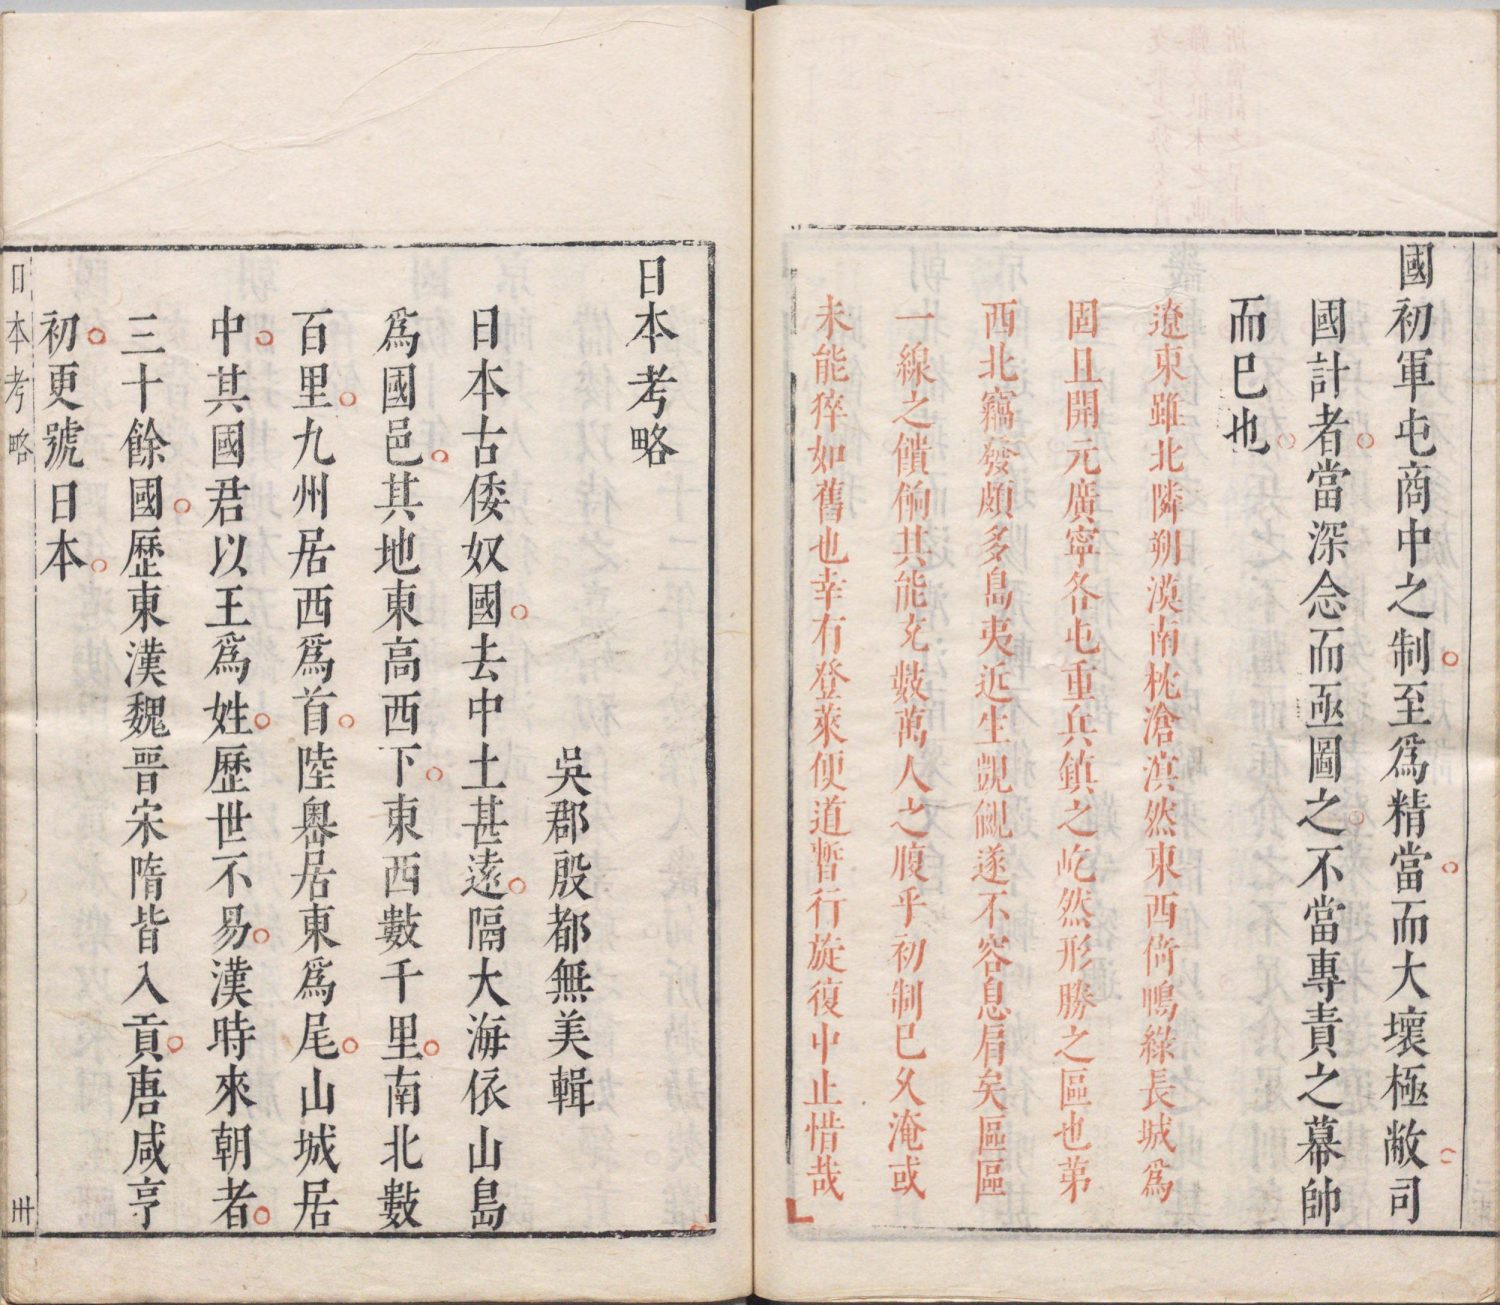 國初軍屯商中之制至爲精當而大壞極敝司
國計者當深念而亟圖之不當專責之幕帥
而已也
遼東雖北隣朔漠南桃滄溟然東西倚鴨綠長城爲
固且開元廣寧各屯重兵鎮之屹然形勝之區也第
西北竊發頗多島夷近生覬覦遂不容息肩矣區區
一線之饋餉其能充數萬人之腹乎初制已久淹或
未能猝如舊也幸有登萊便道暫行旋復中止惜哉
日本考略
吳郡殷都無美輯
日本古倭奴國去中土甚遠隔大海依山島
爲國邑其地東高西下東西數千里南北數
百里九州居西爲首陸奧居東爲尾山城居
中其國君以王爲姓歷世不易漢時來朝者
三十餘國歷東漢魏晉宋隋皆入貢唐咸亨
初更號日本
日本考略
卅